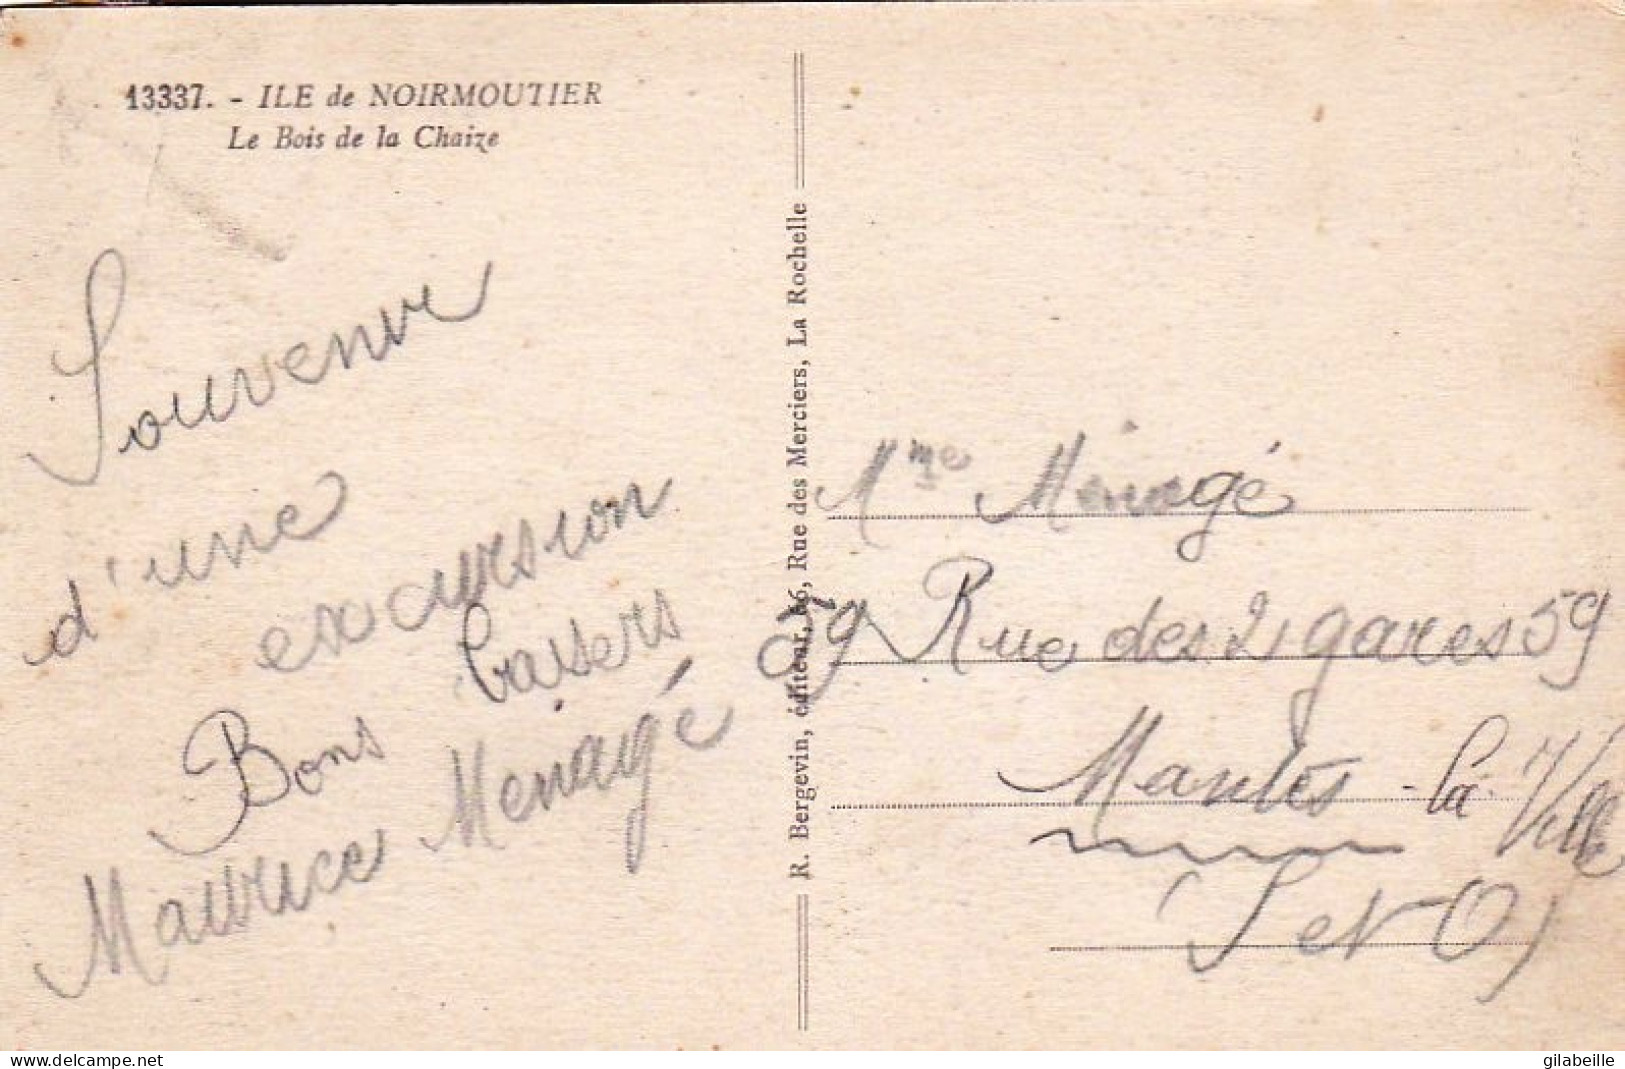 13337. - ILE de NOIRMOUTIER
Le Bois de la Chaize
Souvenir
d'une
excursion
Bons baisers
Maurice Menagé
R. Bergevin, éditeur, 66, Rue des Merciers, La Rochelle
Mme Menagé
59 Rue des 2 gares 59
Mantes-la-Ville
(S et O)
www.delcampe.net
gilabeille